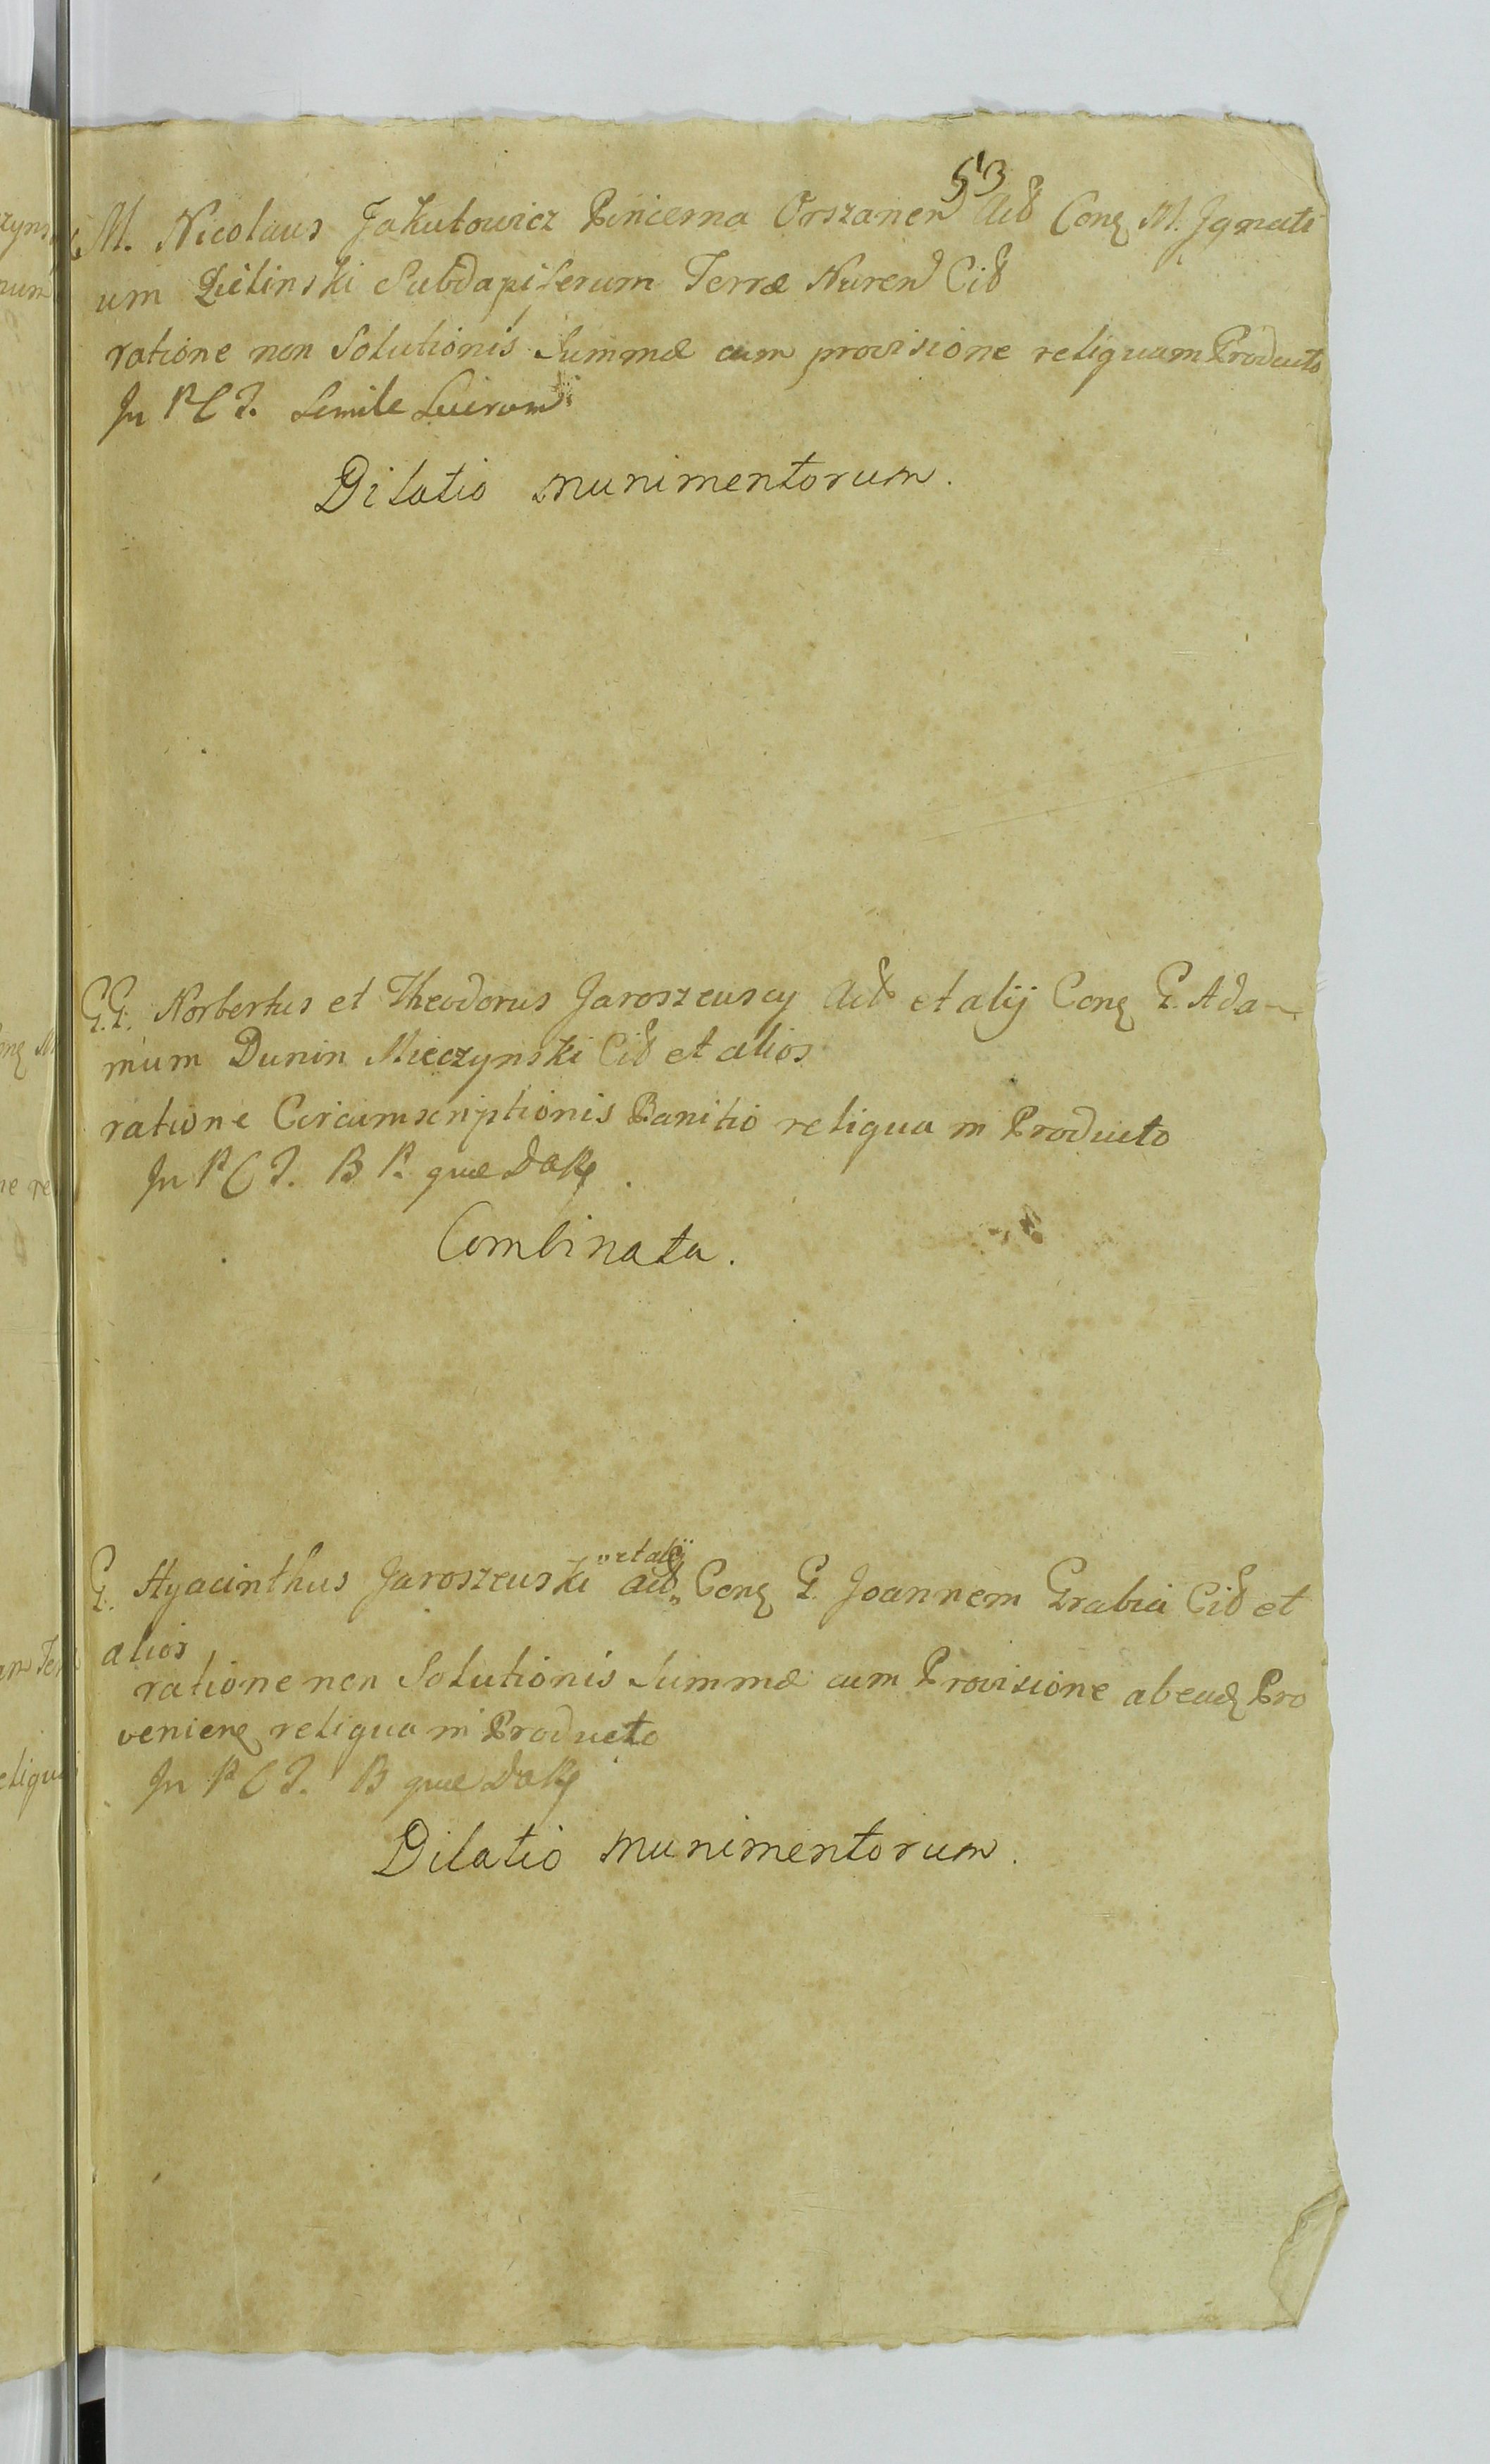 53
M. Nicolaus Jakutowicz Pincerna Orszanen Acb Conq M. Ignati
um Zielinski Subdapiferum Terræ Nuren Cib
ratione non Solutionis Summæ cum provisione reliquam Producto
In P C J.
Dilatio munimentorum.
G.G. Norbertus et Theodorus Jaroszewscy Acb et alij Conq G. Ada-
mum Dunin Mieczynski Cib et alios
ratione Circumscriptionis Banitio reliqua in Producto
In P C J. B P. quæ
Combinata.
et alij
G. Hyacinthus Jaroszewski acb Conq G. Joannem Grabia Cib et
alios
ratione non Solutionis Summæ cum Provisione ab eadq Pro
venienq reliqua in Producto
In P C J. B quæ
Dilatio munimentorum.